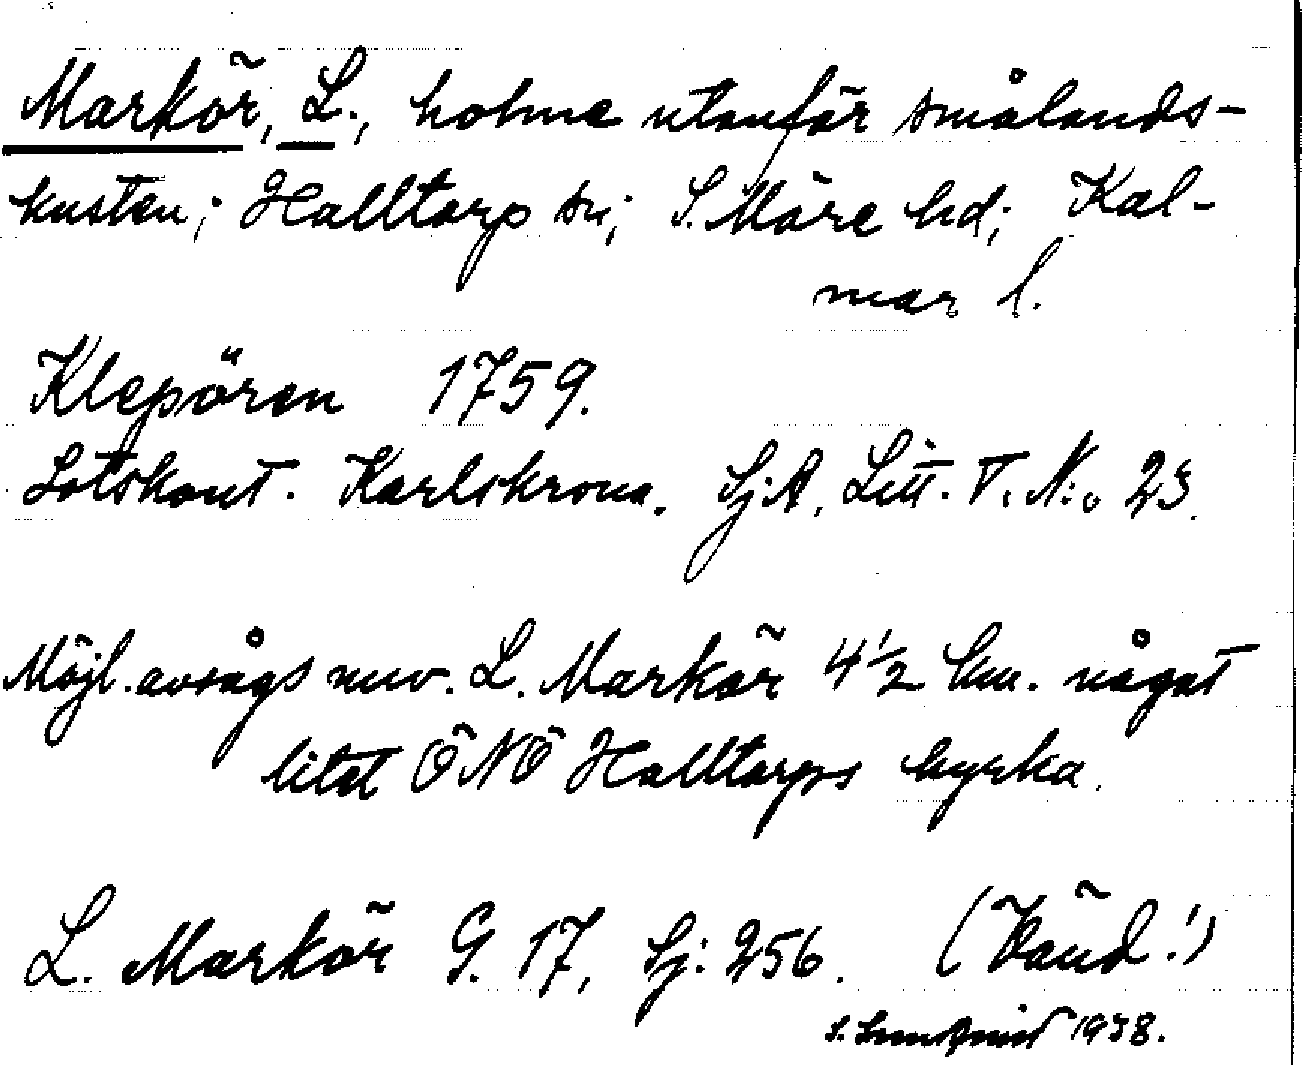 Markör, L., holme utanför smålands-
kusten; Halltorp sn; S. Möre hd; Kal-
mar l.
Klepören 1759.
Lotskont. Karlskrona. Sj:A. Litt. T. N:o 23.
Möjl. avsågs nuv. L. Markör 4 1/2 km. något
litet ÖNÖ Halltorps kyrka.
L. Markör G. 17, Sj: 256. (Vänd!)
S. 1938.